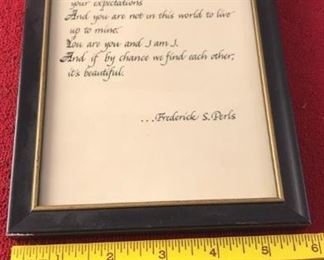 your expectations
And you are not in this world to live
up to mine.
You are you and I am I.
And if by chance we find each other,
it's beautiful.
...Frederick S. Perls
1 2 3 4 5 6